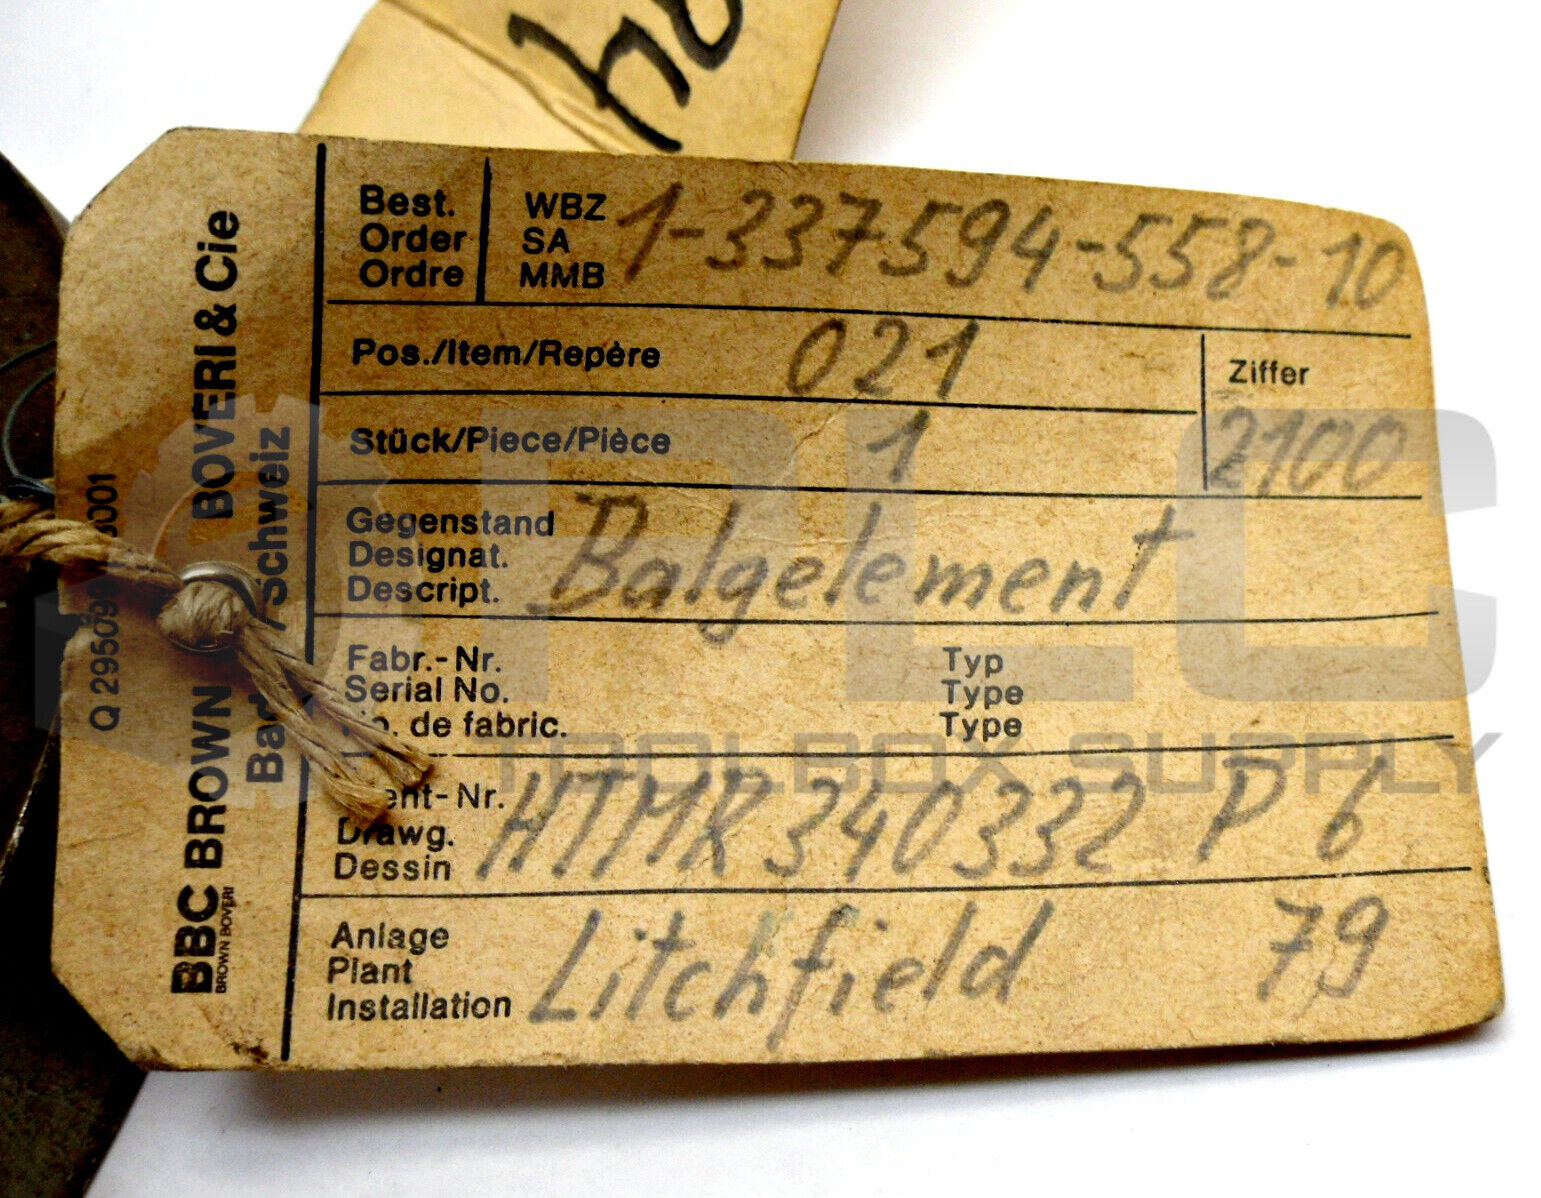 Best. WBZ
Order SA 1-337594-558-10
Ordre MMB
Pos./Item/Repère 021
Ziffer
Stück/Piece/Pièce 1
2100
Gegenstand
Designat. Balgelement
Descript.
Fabr.-Nr. Typ
Serial No. Type
de fabric. Type
HTMR 340332 P 6
Drawg.
Dessin
Anlage
Plant Litchfield 79
Installation
BBC BROWN BOVERI & Cie
BROWN BOVERI
Schweiz
PLC
TOOLBOX SUPPLY